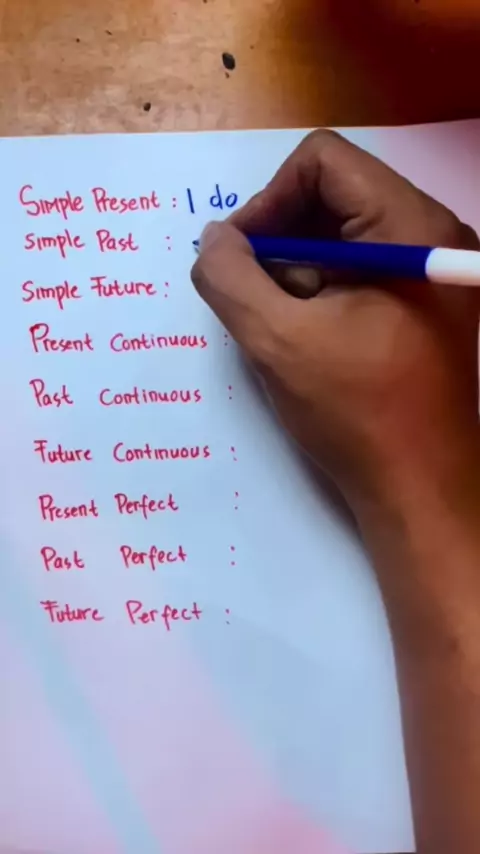 Simple Present : I do
Simple Past :
Simple Future :
Present Continuous :
Past Continuous :
Future Continuous :
Present Perfect :
Past Perfect :
Future Perfect :